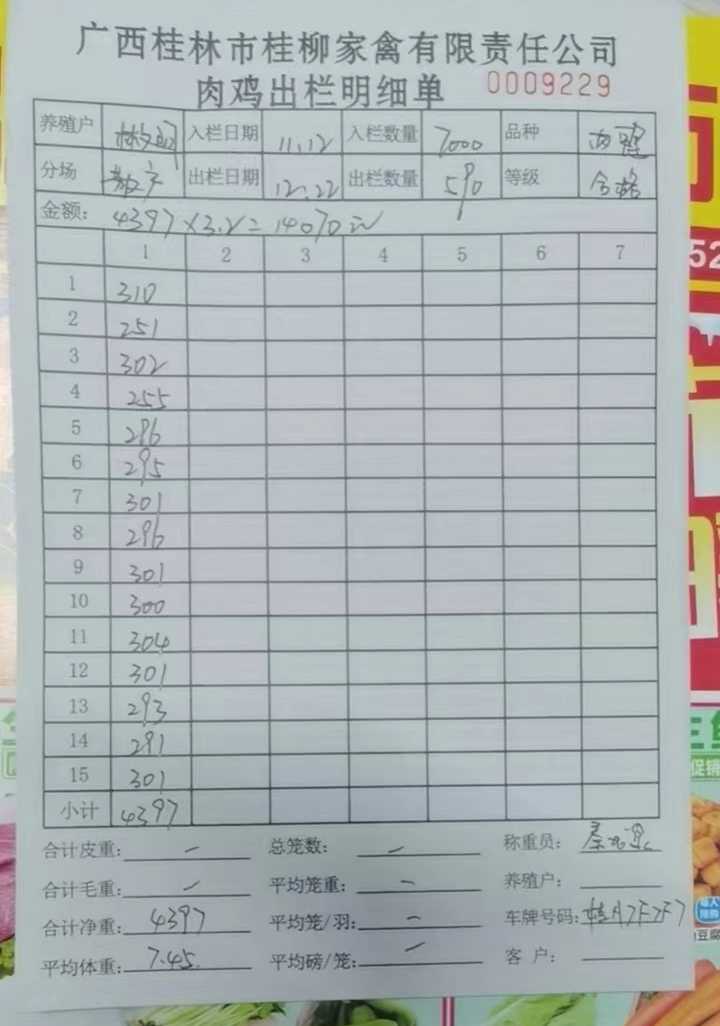 广西桂林市桂柳家禽有限责任公司
肉鸡出栏明细单 0009229
养殖户 入栏日期 11.12 入栏数量 7000 品种 肉鸡
分场 出栏日期 12.22 出栏数量 590 等级 合格
金额: 4397×3.2=14070元
1 2 3 4 5 6 7
1 310
2 251
3 302
4 255
5 296
6 295
7 301
8 296
9 301
10 300
11 304
12 301
13 293
14 291
15 301
小计 4397
合计皮重: — 总笼数: — 称重员:
合计毛重: — 平均笼重: — 养殖户:
合计净重: 4397 平均笼/羽: — 车牌号码: 桂A7F7F7
平均体重: 7.45. 平均磅/笼: — 客 户:
52
促销
豆腐